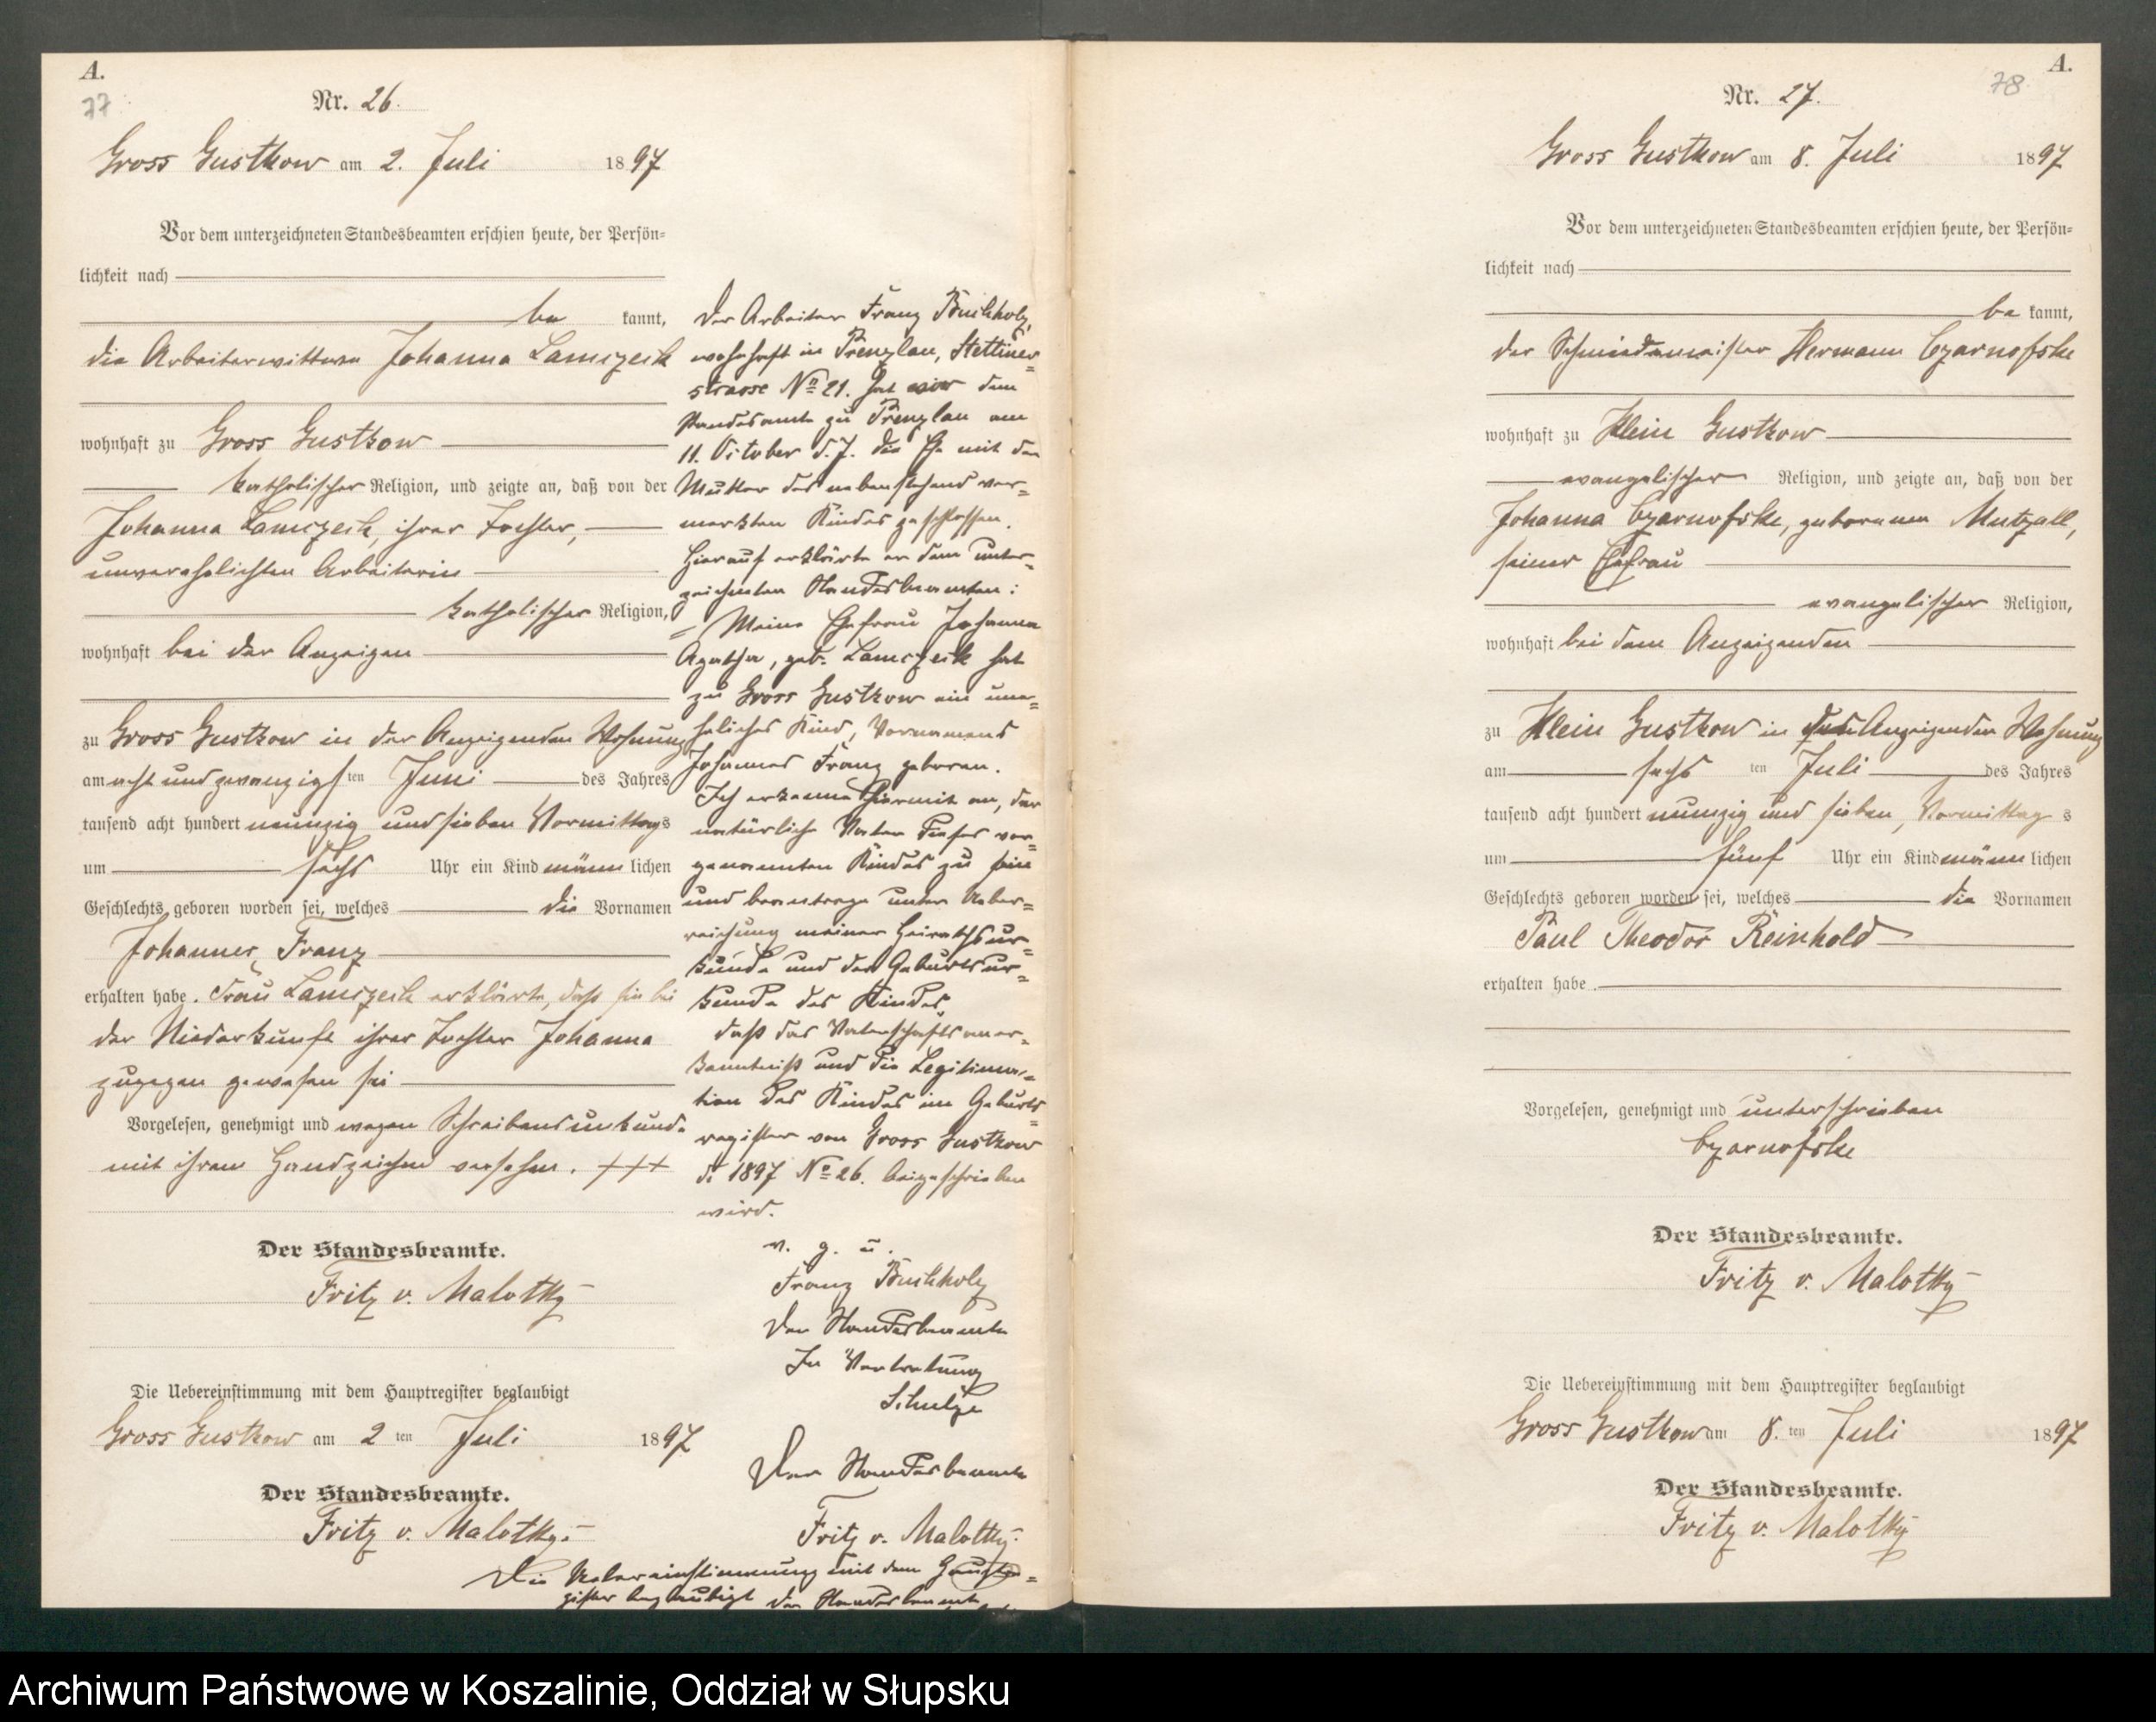 A.
77
Nr. 26.
Gross Gustkow am 2. Juli 1897
Vor dem unterzeichneten Standesbeamten erschien heute, der Persön=
lichkeit nach
be kannt,
die Arbeiterwittwe Johanna Lamczeck
wohnhaft zu Gross Gustkow
katholischer Religion, und zeigte an, daß von der
Johanna Lamczeck, ihrer Tochter,
unverehelichten Arbeiterin
katholischer Religion,
wohnhaft bei der Anzeigen
zu Gross Gustkow in der Anzeigenden Wohnung
am acht und zwanzigsten Juni des Jahres
tausend acht hundert neunzig und sieben Vormittags
um sechs Uhr ein Kind männlichen
Geschlechts geboren worden sei, welches die Vornamen
Johannes Franz
erhalten habe. Frau Lamczeck erklärte, daß sie bei
der Niederkunft ihrer Tochter Johanna
zugegen gewesen sei
Vorgelesen, genehmigt und wegen Schreibensunkunde
mit ihrem Handzeichen versehen. +++
Der Standesbeamte.
Fritz v. Malottky
Die Uebereinstimmung mit dem Hauptregister beglaubigt
Gross Gustkow am 2ten Juli 1897
Der Standesbeamte.
Fritz v. Malottky.
Der Arbeiter Franz Buchholz,
wohnhaft in Prenzlau, Stettiner=
strasse No 21. hat vor dem
Standesamte zu Prenzlau am
11. October d. J. die Ehe mit der
Mutter des nebenstehend ver=
merkten Kindes geschlossen.
Hierauf erklärte er dem unter=
zeichneten Standesbeamten:
"Meine Ehefrau Johanna
Agatha, geb. Lamczeck hat
zu Gross Gustkow ein une=
heliches Kind, Vornamens
Johannes Franz geboren.
Ich erkenne hiermit an, der
natürliche Vater dieses vor=
genannten Kindes zu sein
und beantrage unter Ueber=
reichung meiner Heirathsur=
kunde und der Geburtsur=
kunde des Kindes,
daß das Vaterschaftsaner=
kenntniß und die Legitima=
tion des Kindes im Geburts=
register von Gross Gustkow
de 1897 No 26. beigeschrieben
wird.
v. g. u.
Franz Buchholz
Der Standesbeamte
In Vertretung
Schulze
Der Standesbeamte
Fritz v. Malottky.
Die Uebereinstimmung mit dem Hauptre=
gister beglaubigt der Standesbeamte
A.
78
Nr. 27.
Gross Gustkow am 8. Juli 1897
Vor dem unterzeichneten Standesbeamten erschien heute, der Persön=
lichkeit nach
be kannt,
der Schmiedemeister Hermann Czarnofske
wohnhaft zu Klein Gustkow
evangelischer Religion, und zeigte an, daß von der
Johanna Czarnofske, geborenen Mutzall,
seiner Ehefrau
evangelischer Religion,
wohnhaft bei dem Anzeigenden
zu Klein Gustkow in des Anzeigenden Wohnung
am sechs ten Juli des Jahres
tausend acht hundert neunzig und sieben, Vormittags
um fünf Uhr ein Kind männlichen
Geschlechts geboren worden sei, welches die Vornamen
Paul Theodor Reinhold
erhalten habe.
Vorgelesen, genehmigt und unterschrieben
Czarnofske
Der Standesbeamte.
Fritz v. Malottky
Die Uebereinstimmung mit dem Hauptregister beglaubigt
Gross Gustkow am 8. ten Juli 1897
Der Standesbeamte.
Fritz v. Malottky
Archiwum Państwowe w Koszalinie, Oddział w Słupsku